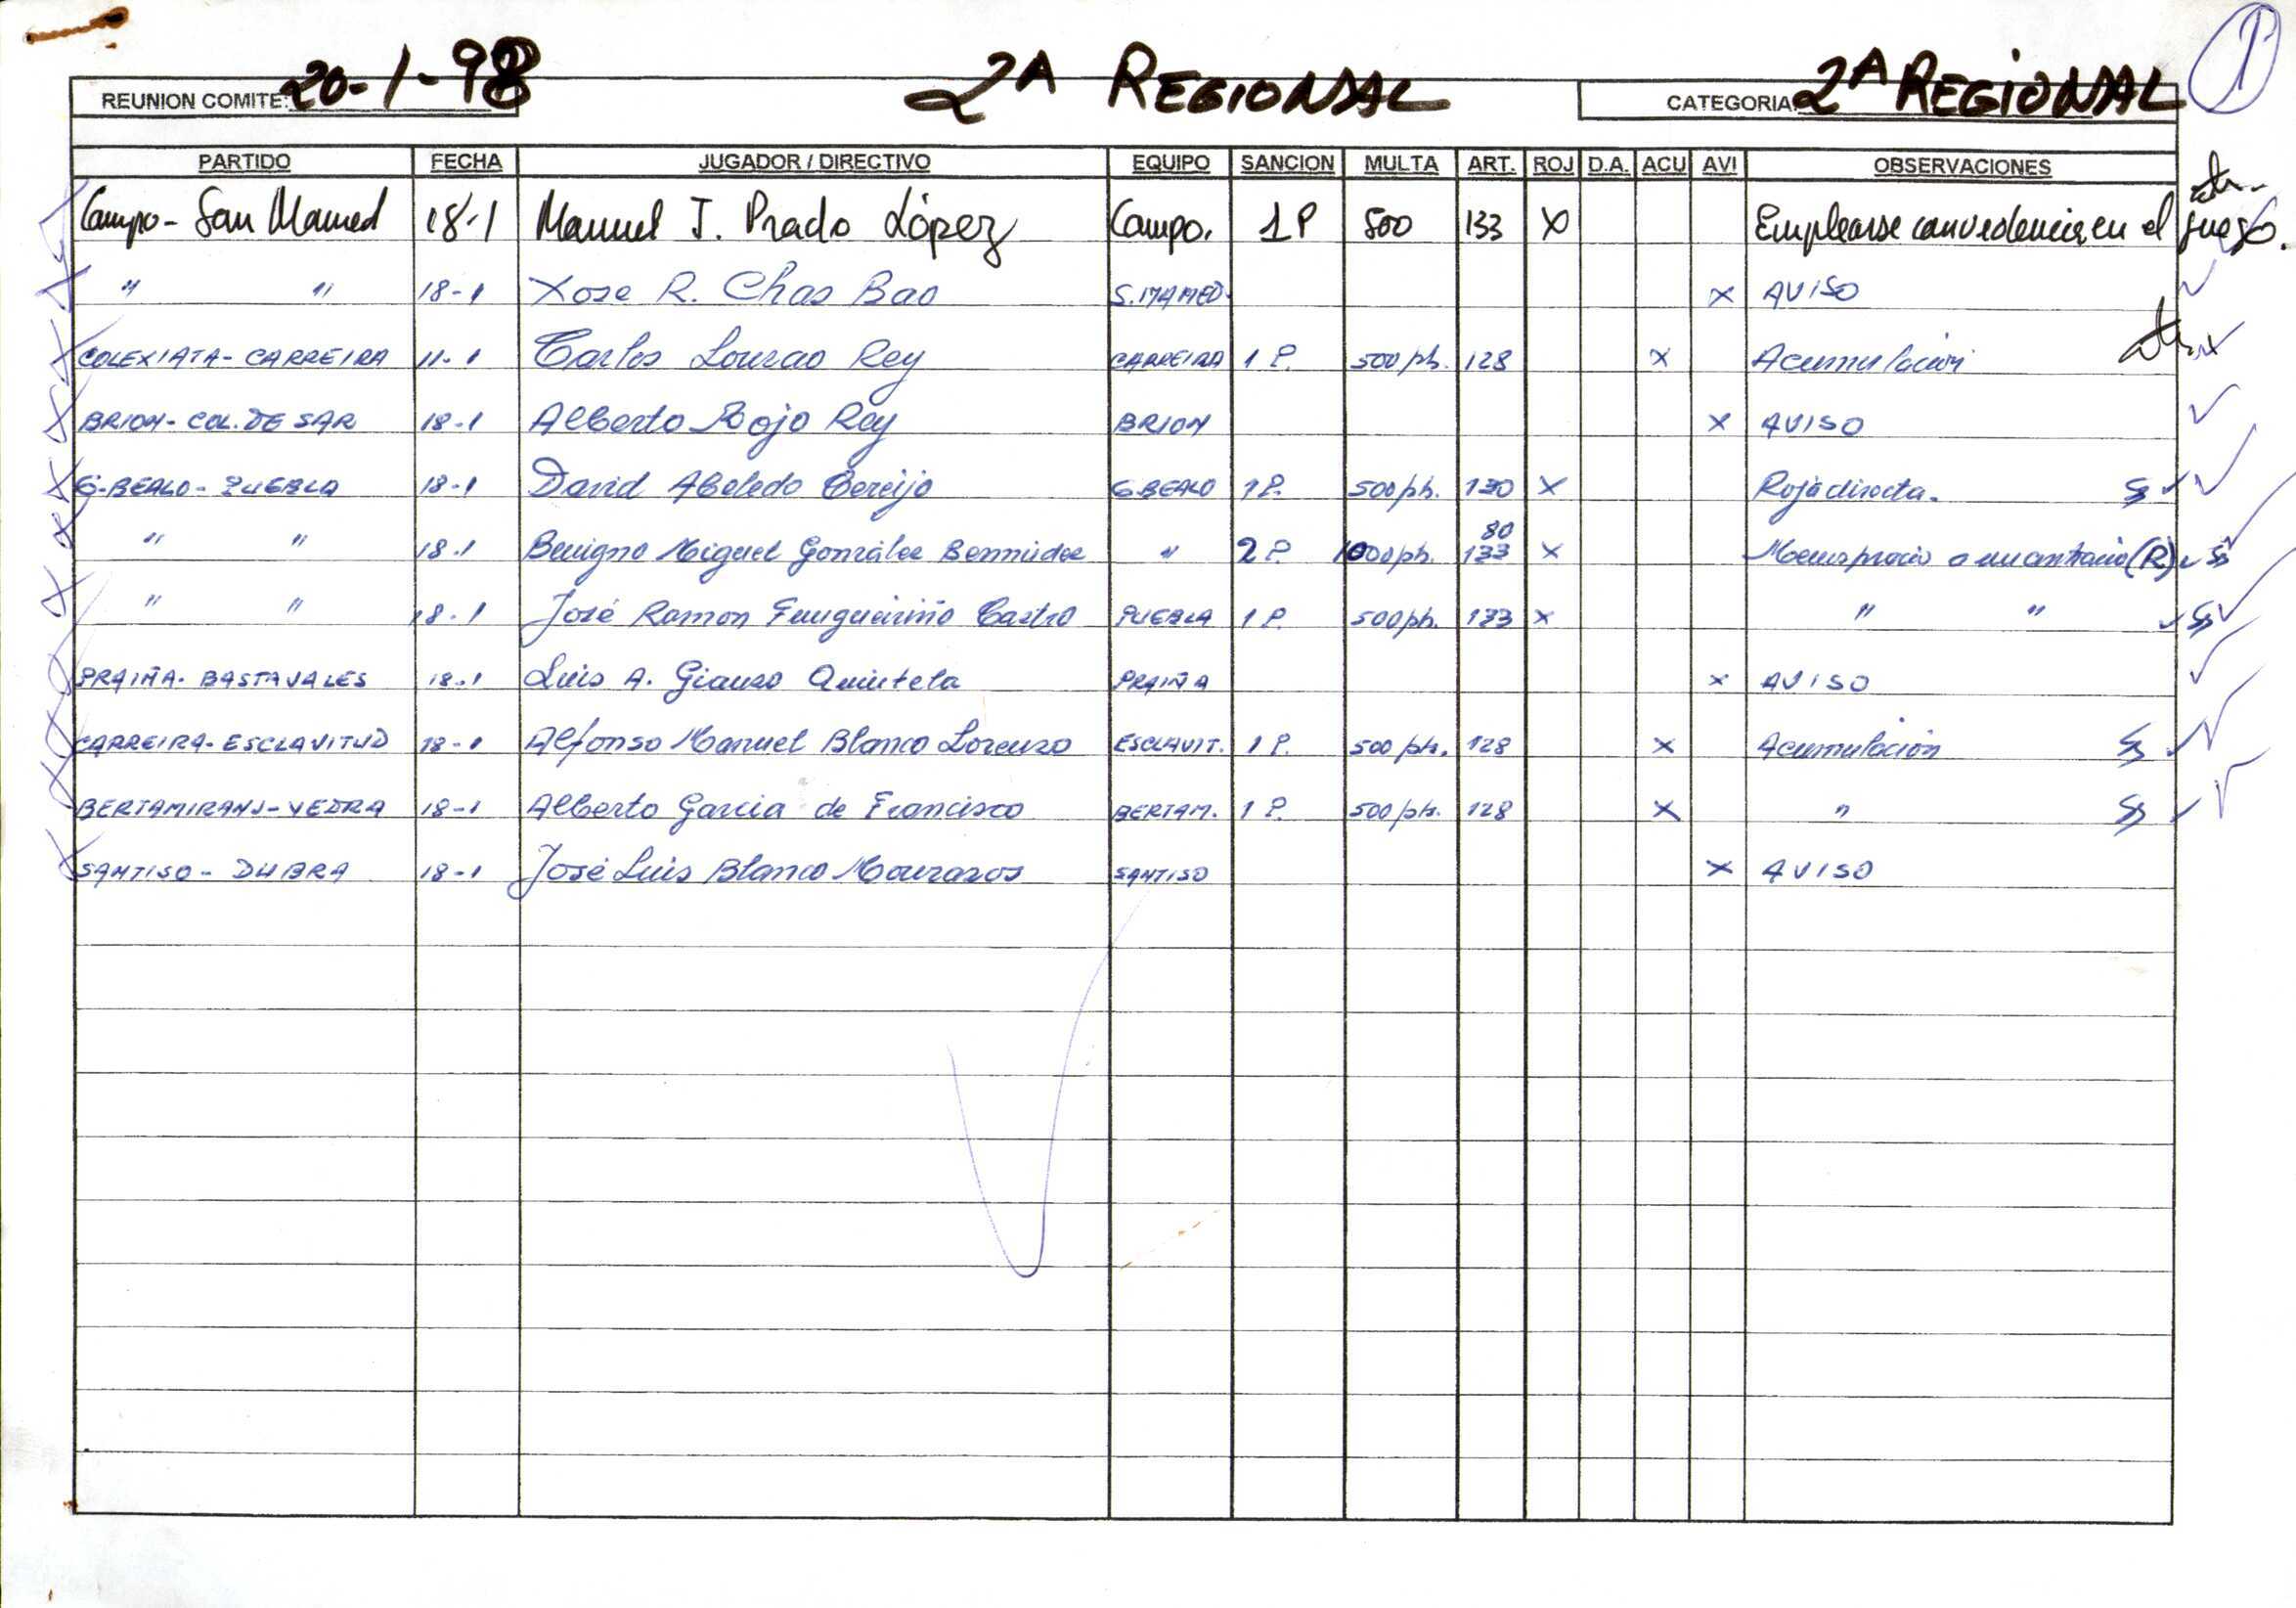 REUNION COMITE: 20-1-98 2ª REGIONAL CATEGORIA: 2ª REGIONAL 1
PARTIDO FECHA JUGADOR / DIRECTIVO EQUIPO SANCION MULTA ART. ROJ D.A. ACU AVI OBSERVACIONES
Campo - San Mamed 18-1 Manuel J. Prado López Campo. 1P 500 133 X Emplearse con violencia en el juego.
" " 18-1 Xose R. Chas Bao S.MAMED. X AVISO
COLEXIATA - CARREIRA 11-1 Carlos Lourao Rey CARREIRA 1 P. 500 pts. 128 X Acumulación
BRION - COL. DE SAR 18-1 Alberto Rojo Rey BRION X AVISO
G-BEALO - PUEBLA 18-1 David Abeledo Cereijo G.BEALO 1 P. 500 pts. 130 X Roja directa.
80
" " 18-1 Benigno Miguel González Bermúdez " 2 P. 1000 pts. 133 X Menosprecio a un contrario (R)
" " 18-1 José Ramon Fungueiriño Castro PUEBLA 1 P. 500 pts. 133 X " "
PRAIÑA - BASTAVALES 18-1 Luis A. Gianzo Quintela PRAIÑA X AVISO
CARREIRA - ESCLAVITUD 18-1 Alfonso Manuel Blanco Lorenzo ESCLAVIT. 1 P. 500 pts. 128 X Acumulación
BERTAMIRANS - VEDRA 18-1 Alberto Garcia de Francisco BERTAM. 1 P. 500 pts. 128 X "
SANTISO - DUBRA 18-1 José Luis Blanco Mourazos SANTISO X AVISO